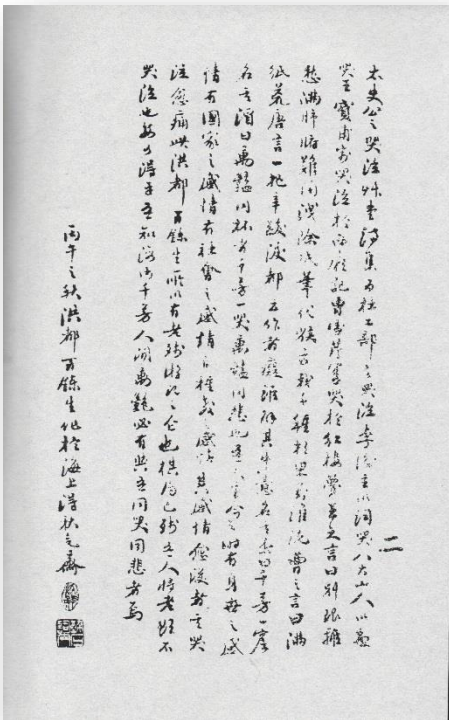 太史公之哭泣草堂詩集為杜工部之哭泣李後主以詞哭八大山人以畫
哭王實甫寄哭泣於西廂記曹雪芹寄哭於紅樓夢王之言曰別恨離
愁滿肺腑難陶洩除紙筆代喉舌我千種相思對誰說曹之言曰滿
紙荒唐言一把辛酸淚都云作者癡誰解其中意名其茶曰千芳一窟
名其酒曰萬豔同杯者千芳一哭萬豔同悲也吾人生今之時有身世之感
情有國家之感情有社會之感情有種教之感情其感情愈深者其哭
泣愈痛此洪都百鍊生所以有老殘遊記之作也棋局已殘吾人將老欲不
哭泣也得乎吾知海內千芳人間萬豔必有與吾同哭同悲者焉
丙午之秋洪都百鍊生作於海上得秋氣齋
二